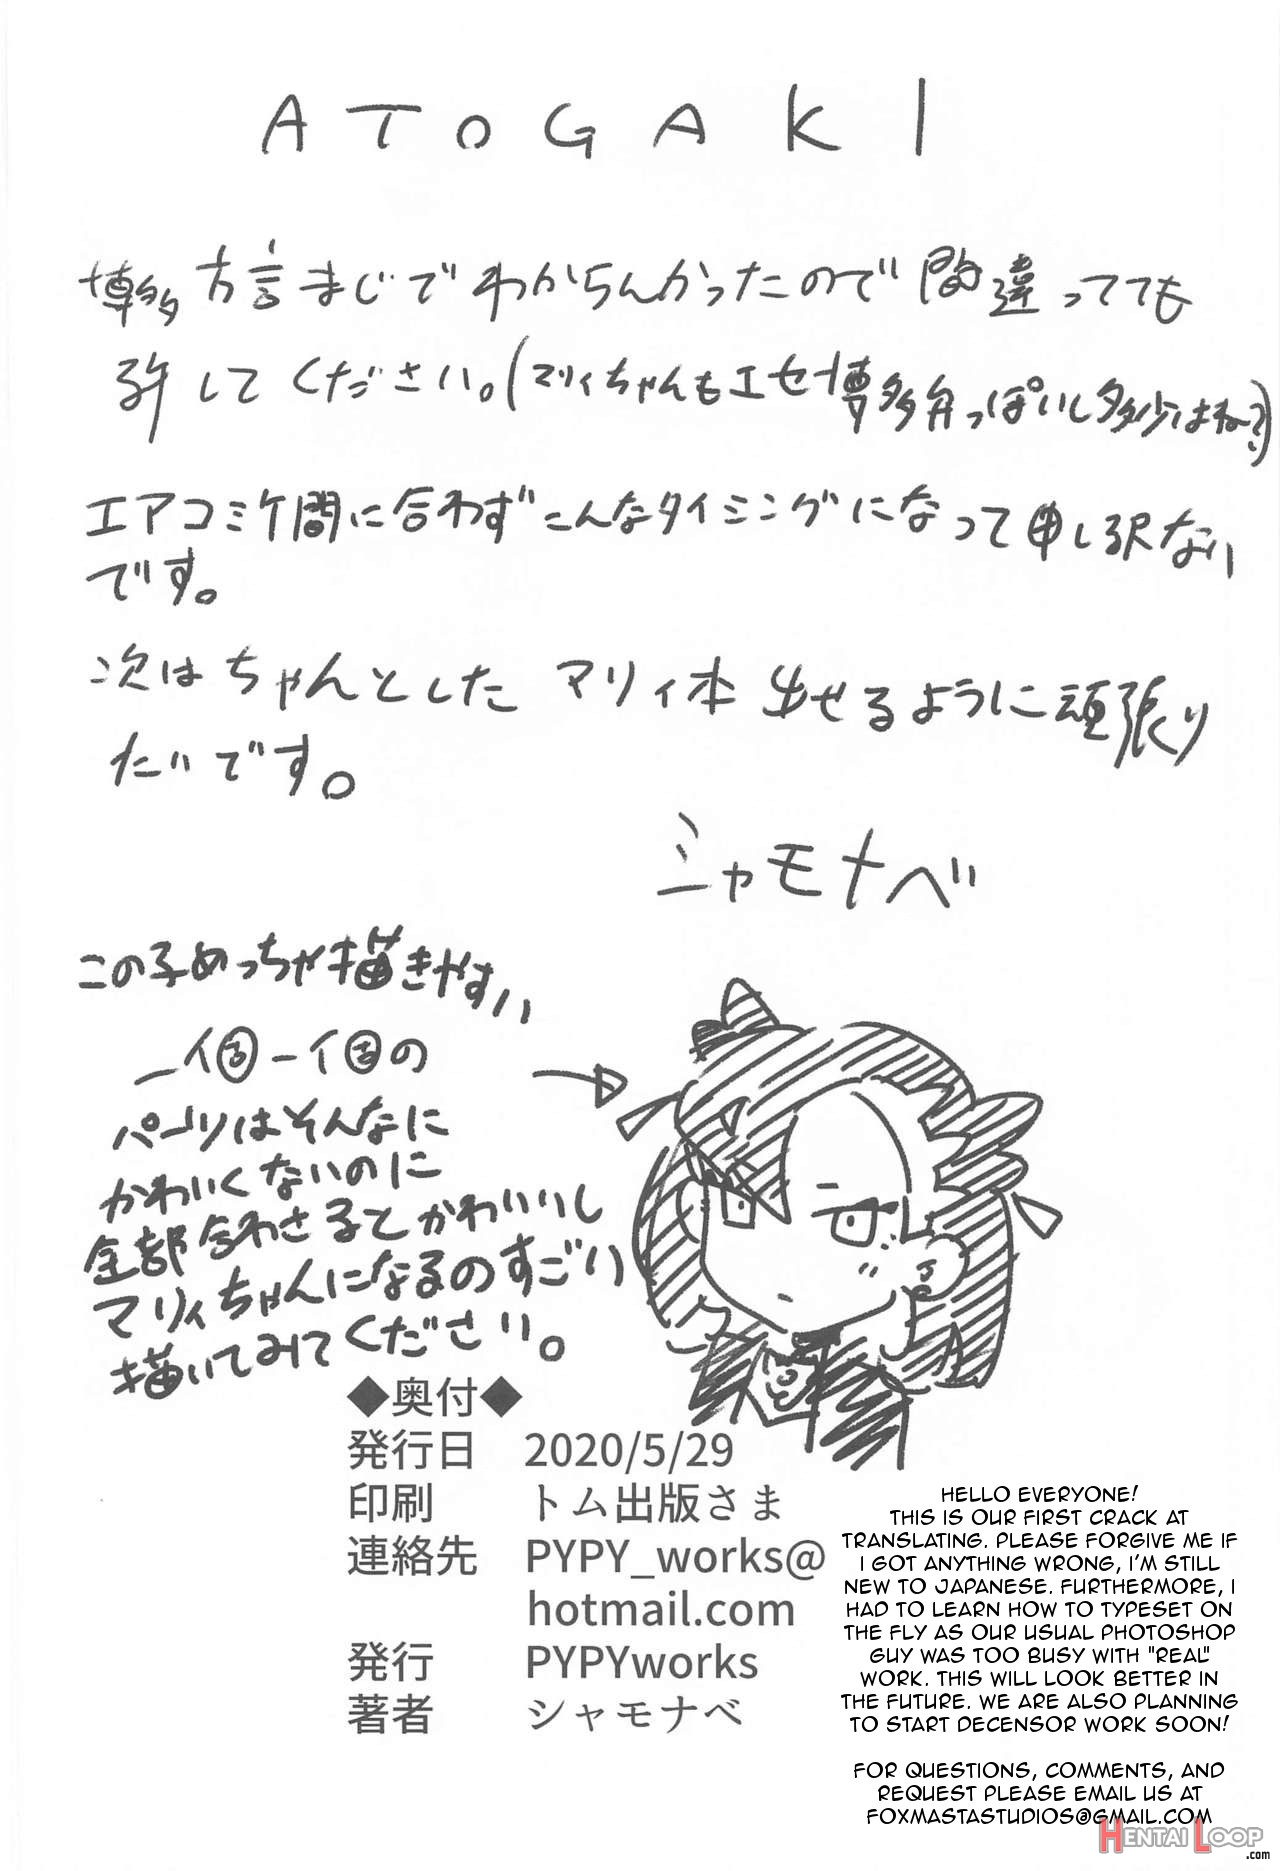 ATOGAKI
博多方言まじでわからんかったので間違ってても
許してください。(マリィちゃんもエセ博多弁っぽいし多少はね?)
エアコミケ間に合わずこんなタイミングになって申し訳ない
です。
次はちゃんとしたマリィ本出せるように頑張り
たいです。
シャモナベ
この子めっちゃ描きやすい
一個一個の
パーツはそんなに
かわいくないのに
全部合わさるとかわいいし
マリィちゃんになるのすごい
描いてみてください。
◆奥付◆
発行日 2020/5/29
印刷 トム出版さま
連絡先 PYPY_works@
hotmail.com
発行 PYPYworks
著者 シャモナベ
HELLO EVERYONE!
THIS IS OUR FIRST CRACK AT
TRANSLATING. PLEASE FORGIVE ME IF
I GOT ANYTHING WRONG, I'M STILL
NEW TO JAPANESE. FURTHERMORE, I
HAD TO LEARN HOW TO TYPESET ON
THE FLY AS OUR USUAL PHOTOSHOP
GUY WAS TOO BUSY WITH "REAL"
WORK. THIS WILL LOOK BETTER IN
THE FUTURE. WE ARE ALSO PLANNING
TO START DECENSOR WORK SOON!
FOR QUESTIONS, COMMENTS, AND
REQUEST PLEASE EMAIL US AT
FOXMASTASTUDIOS@GMAIL.COM
HENTAI LOOP
.com